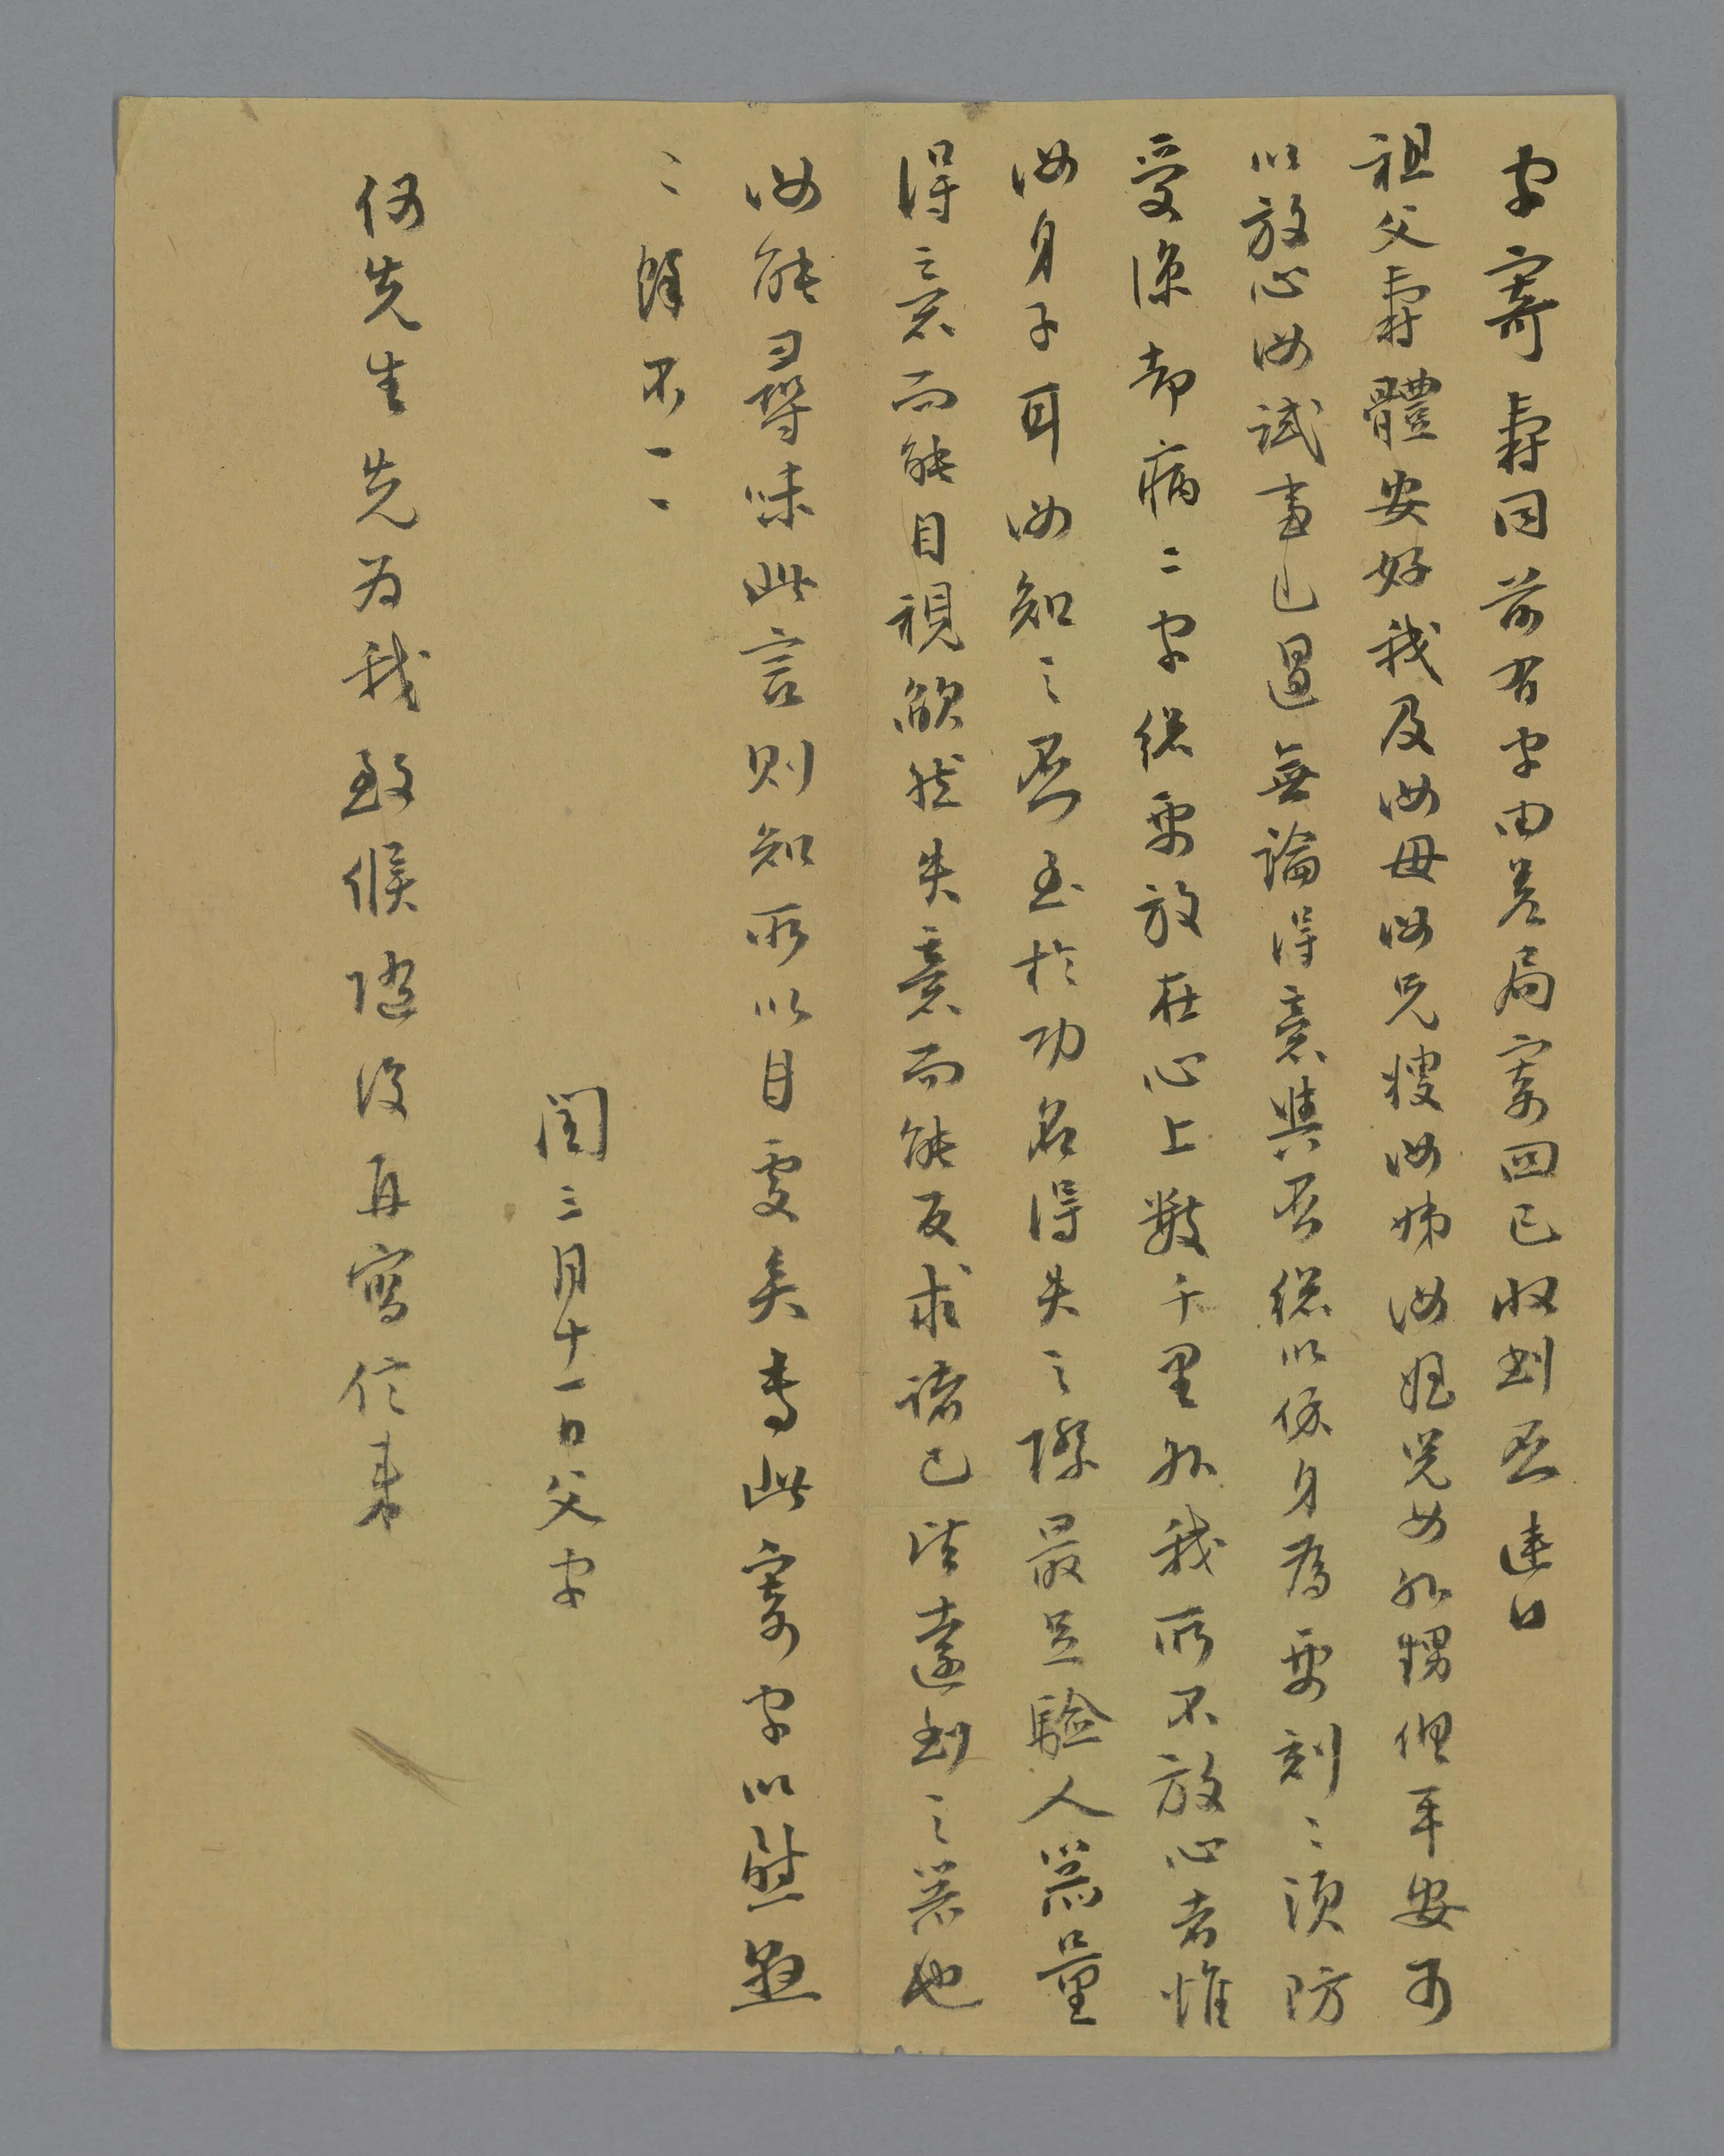 字寄壽同前有字由差局寄回已收到否連日
祖父壽體安好我及汝母汝兄嫂汝姊汝姪兒女外甥俱平安可
以放心汝試事已過無論得意與否總以保身為要刻〻須防
受涼却病二字總要放在心上數千里外我所不放心者惟
汝身子耳汝知之否至於功名得失之際最足驗人器量
得意而能自視欿然失意而能反求諸己皆遠到之器也
汝能尋味此言則知所以自處矣專此寄字以慰懸
〻餘不一一
閏三月十一日父字
何先生先為我致候隨後再寫信來